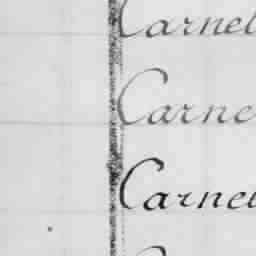 Carnel
Carne
Carnel